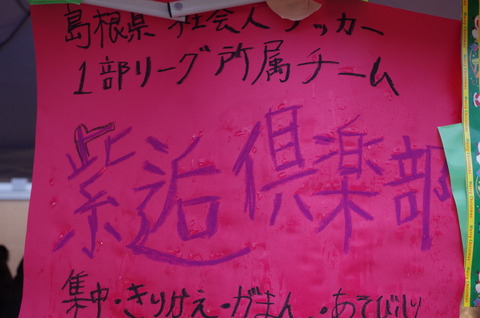 島根県 社会人サッカー
1部リーグ所属チーム
紫近倶楽部
集中・きりかえ・がまん・あそび心